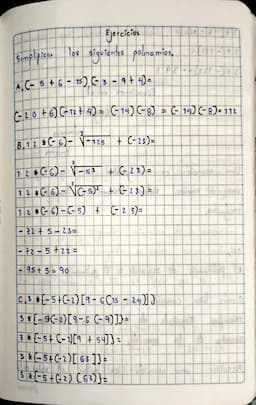 Ejercicios
Simplificar los siguientes polinomios.
A. (- 5 + 6 - 15) (- 3 - 9 + 4) =
(- 20 + 6) (- 12 + 4) = (- 14) (- 8) = (- 14) (- 8) = 112
B. 12 * (- 6) - ∛-125 + (- 23) =
12 * (- 6) - ∛-5³ + (- 23) =
12 * (- 6) - ∛(- 5)³ + (- 23) =
12 * (- 6) - (- 5) + (- 23) =
- 72 + 5 - 23 =
- 72 - 5 + 23 =
- 95 + 5 = 90
C. 3 * [- 5 + (- 2) [9 - 6 (15 - 24)]]
3 * [- 5 + (- 2) [9 - 6 (- 9)]] =
3 * [- 5 + (- 2) [9 + 54]] =
3 * [- 5 + (- 2) [63]] =
3 * [- 5 + (- 2) (63)] =